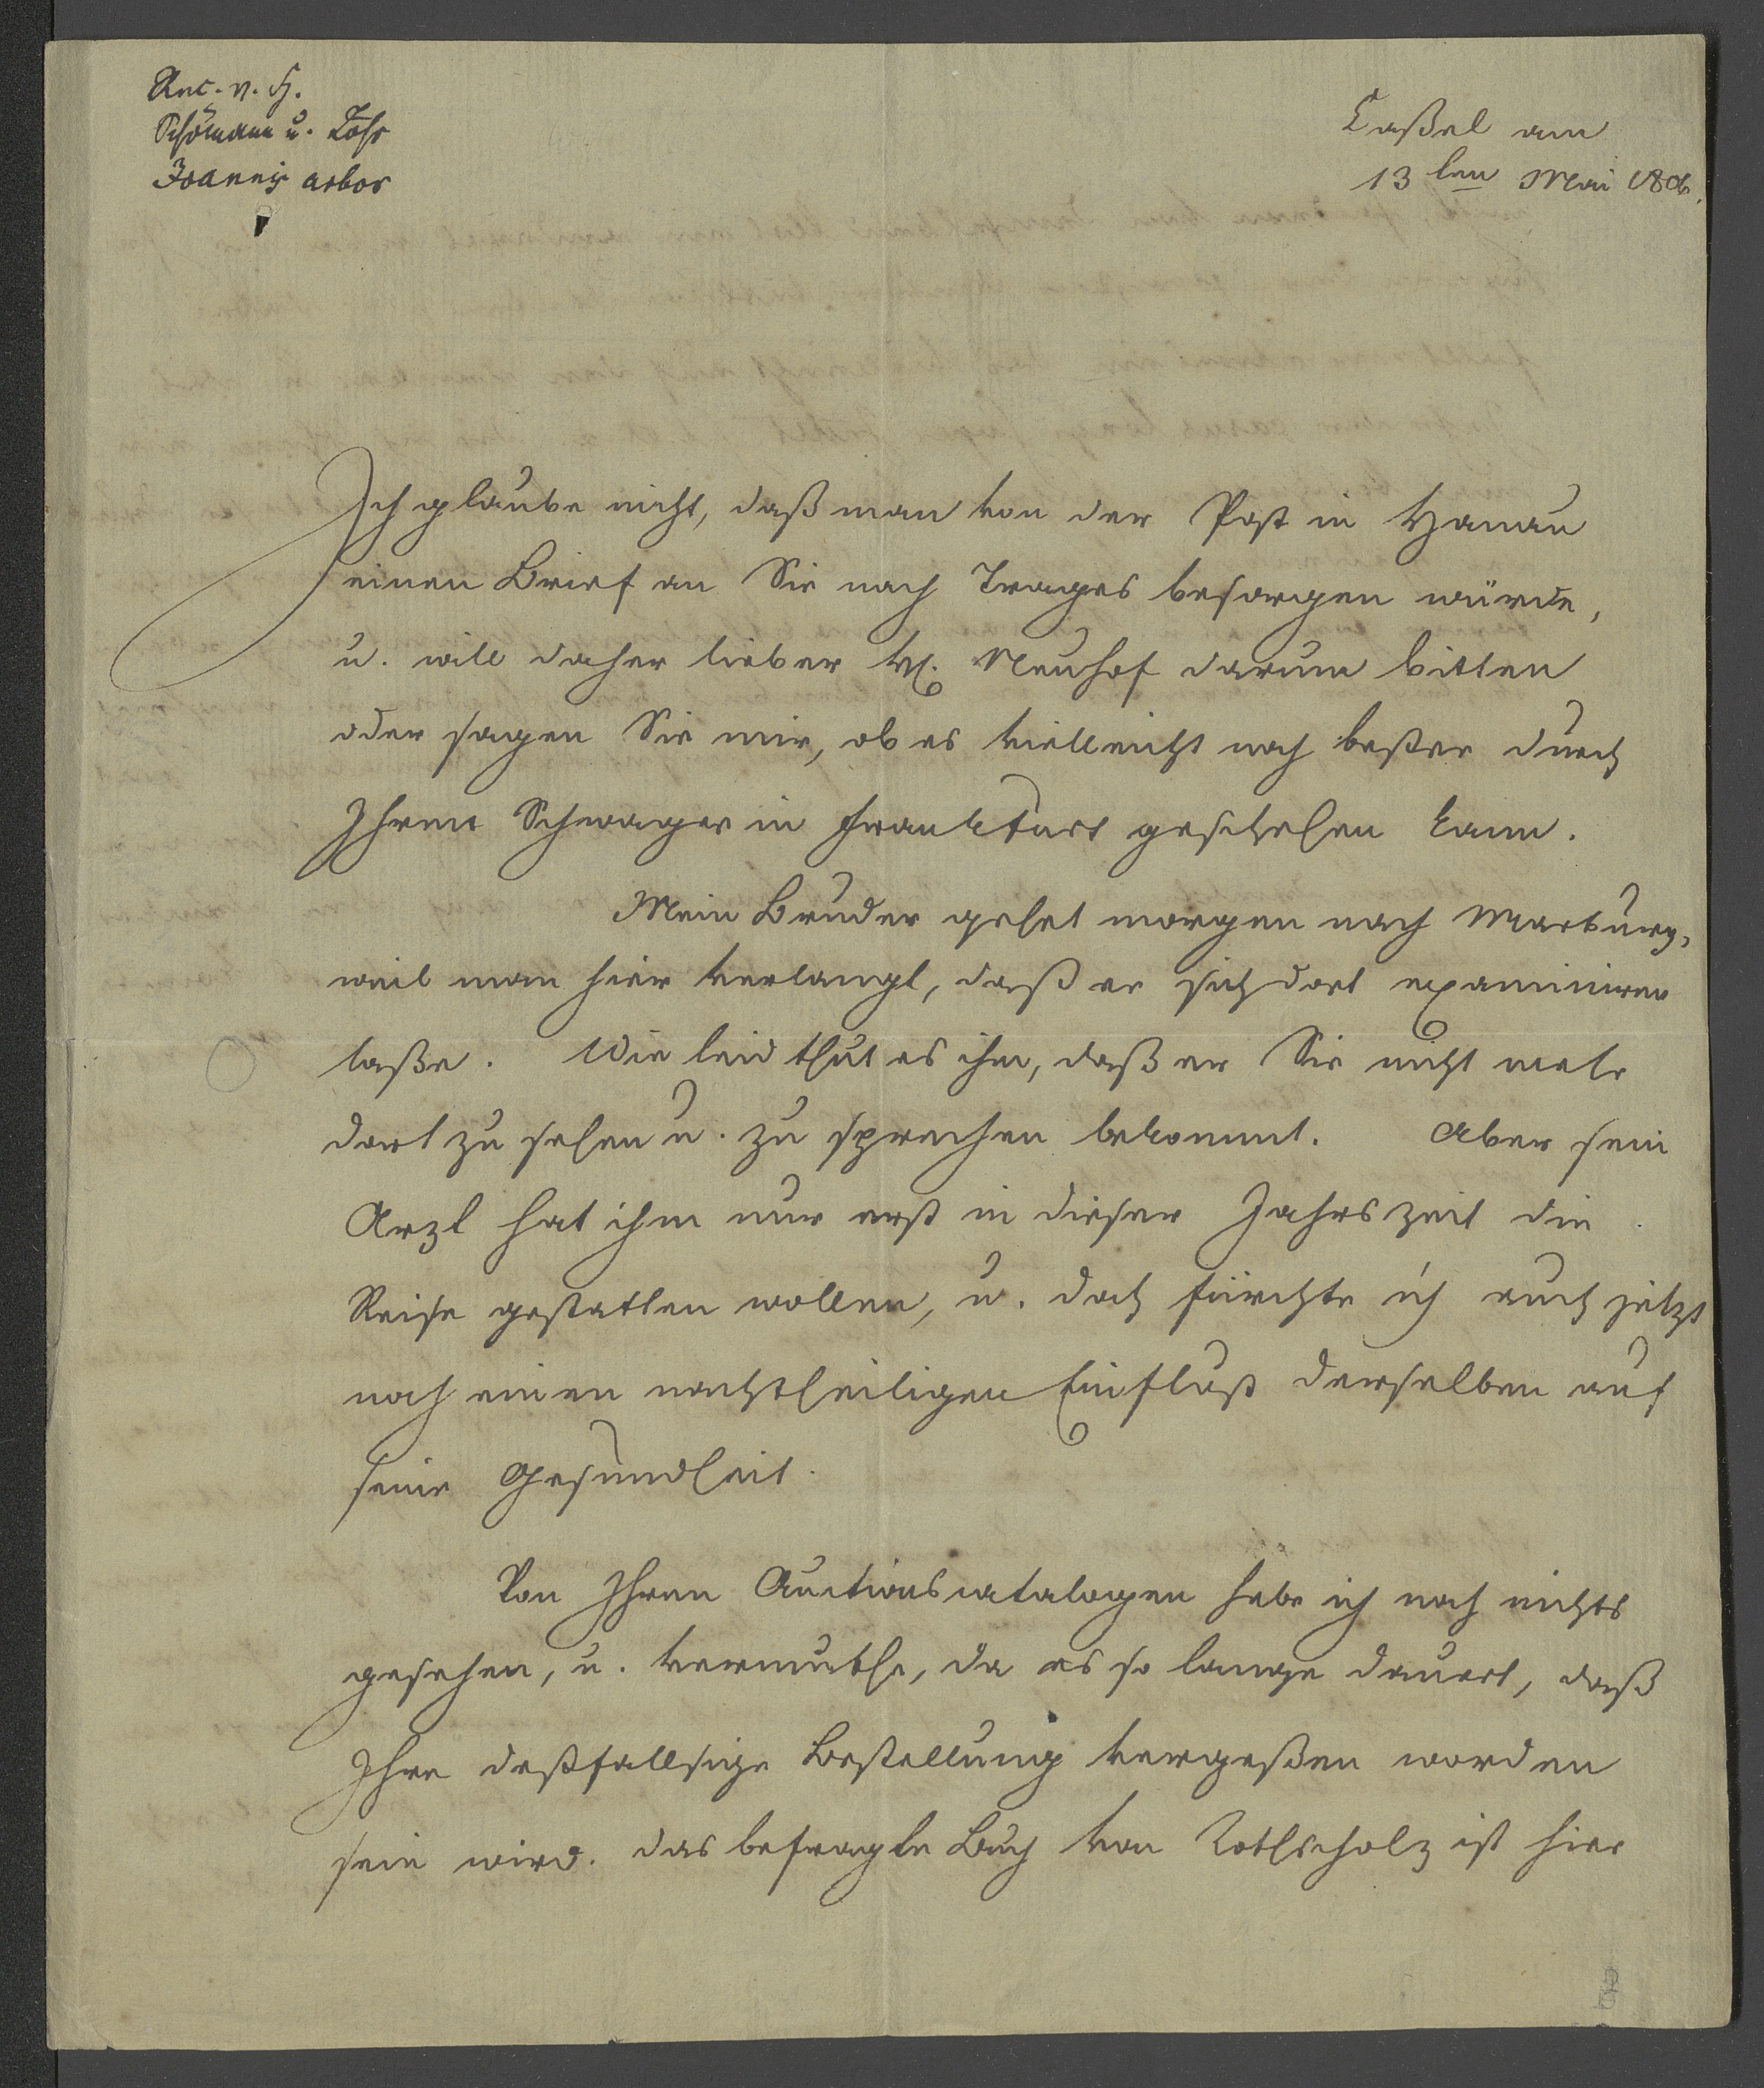 Ant. v. H.
Schömann u. Löhr
Joannis arbor
Caßel am
13 ten Mai 1806.
Ich glaube nicht, daß man von der Post in Hanau
einen Brief an Sie nach Trages besorgen würde,
u. will daher lieber H. Neuhof darum bitten
oder sagen Sie mir, ob es vielleicht noch beßer durch
Ihren Schwager in Frankfurt geschehen kann.
Mein Bruder gehet morgen nach Marburg,
weil man hier verlangt, daß er sich dort examiniren
laße. Wie leid thut es ihm, daß er Sie nicht mehr
dort zu sehen u. zu sprechen bekommt. Aber sein
Arzt hat ihm nur erst in dieser Jahrszeit die
Reise gestatten wollen, u. doch fürchte ich auch jetzt
noch einen nachtheiligen Einfluß derselben auf
seine Gesundheit.
Von Ihren Auctionscatalogen habe ich noch nichts
gesehen, u. vermuthe, da es so lange dauert, daß
Ihre deßfallsige Bestellung vergeßen worden
sein wird. das befragte Buch von Rothscholz ist hier